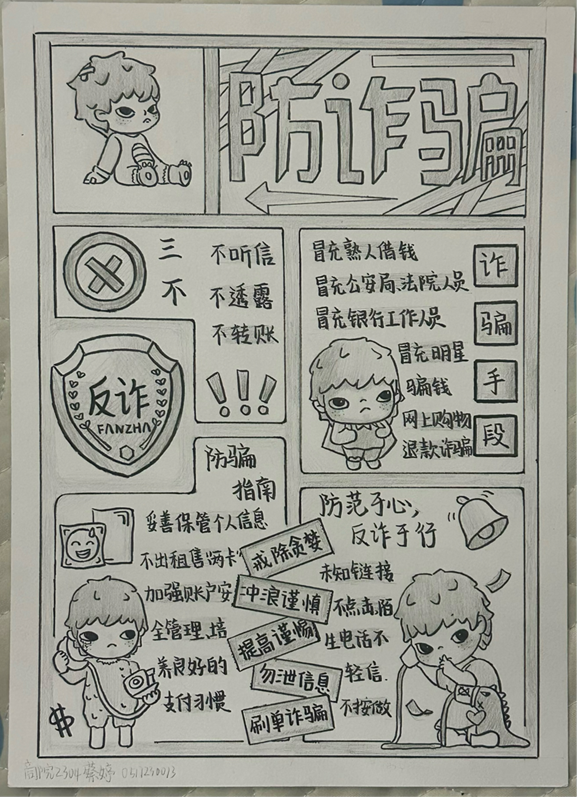 防诈骗
三不
不听信
不透露
不转账
!!!
反诈
FANZHA
冒充熟人借钱
冒充公安局、法院人员
冒充银行工作人员
冒充明星
骗钱
网上购物
退款诈骗
诈
骗
手
段
防骗
指南
妥善保管个人信息
不出租售"两卡"
加强账户安
全管理、培
养良好的
支付习惯
$
戒除贪婪
冲浪谨慎
提高谨惕
勿泄信息
刷单诈骗
防范于心,
反诈于行
未知链接
不点击陌
生电话不
轻信.
不按做
2304